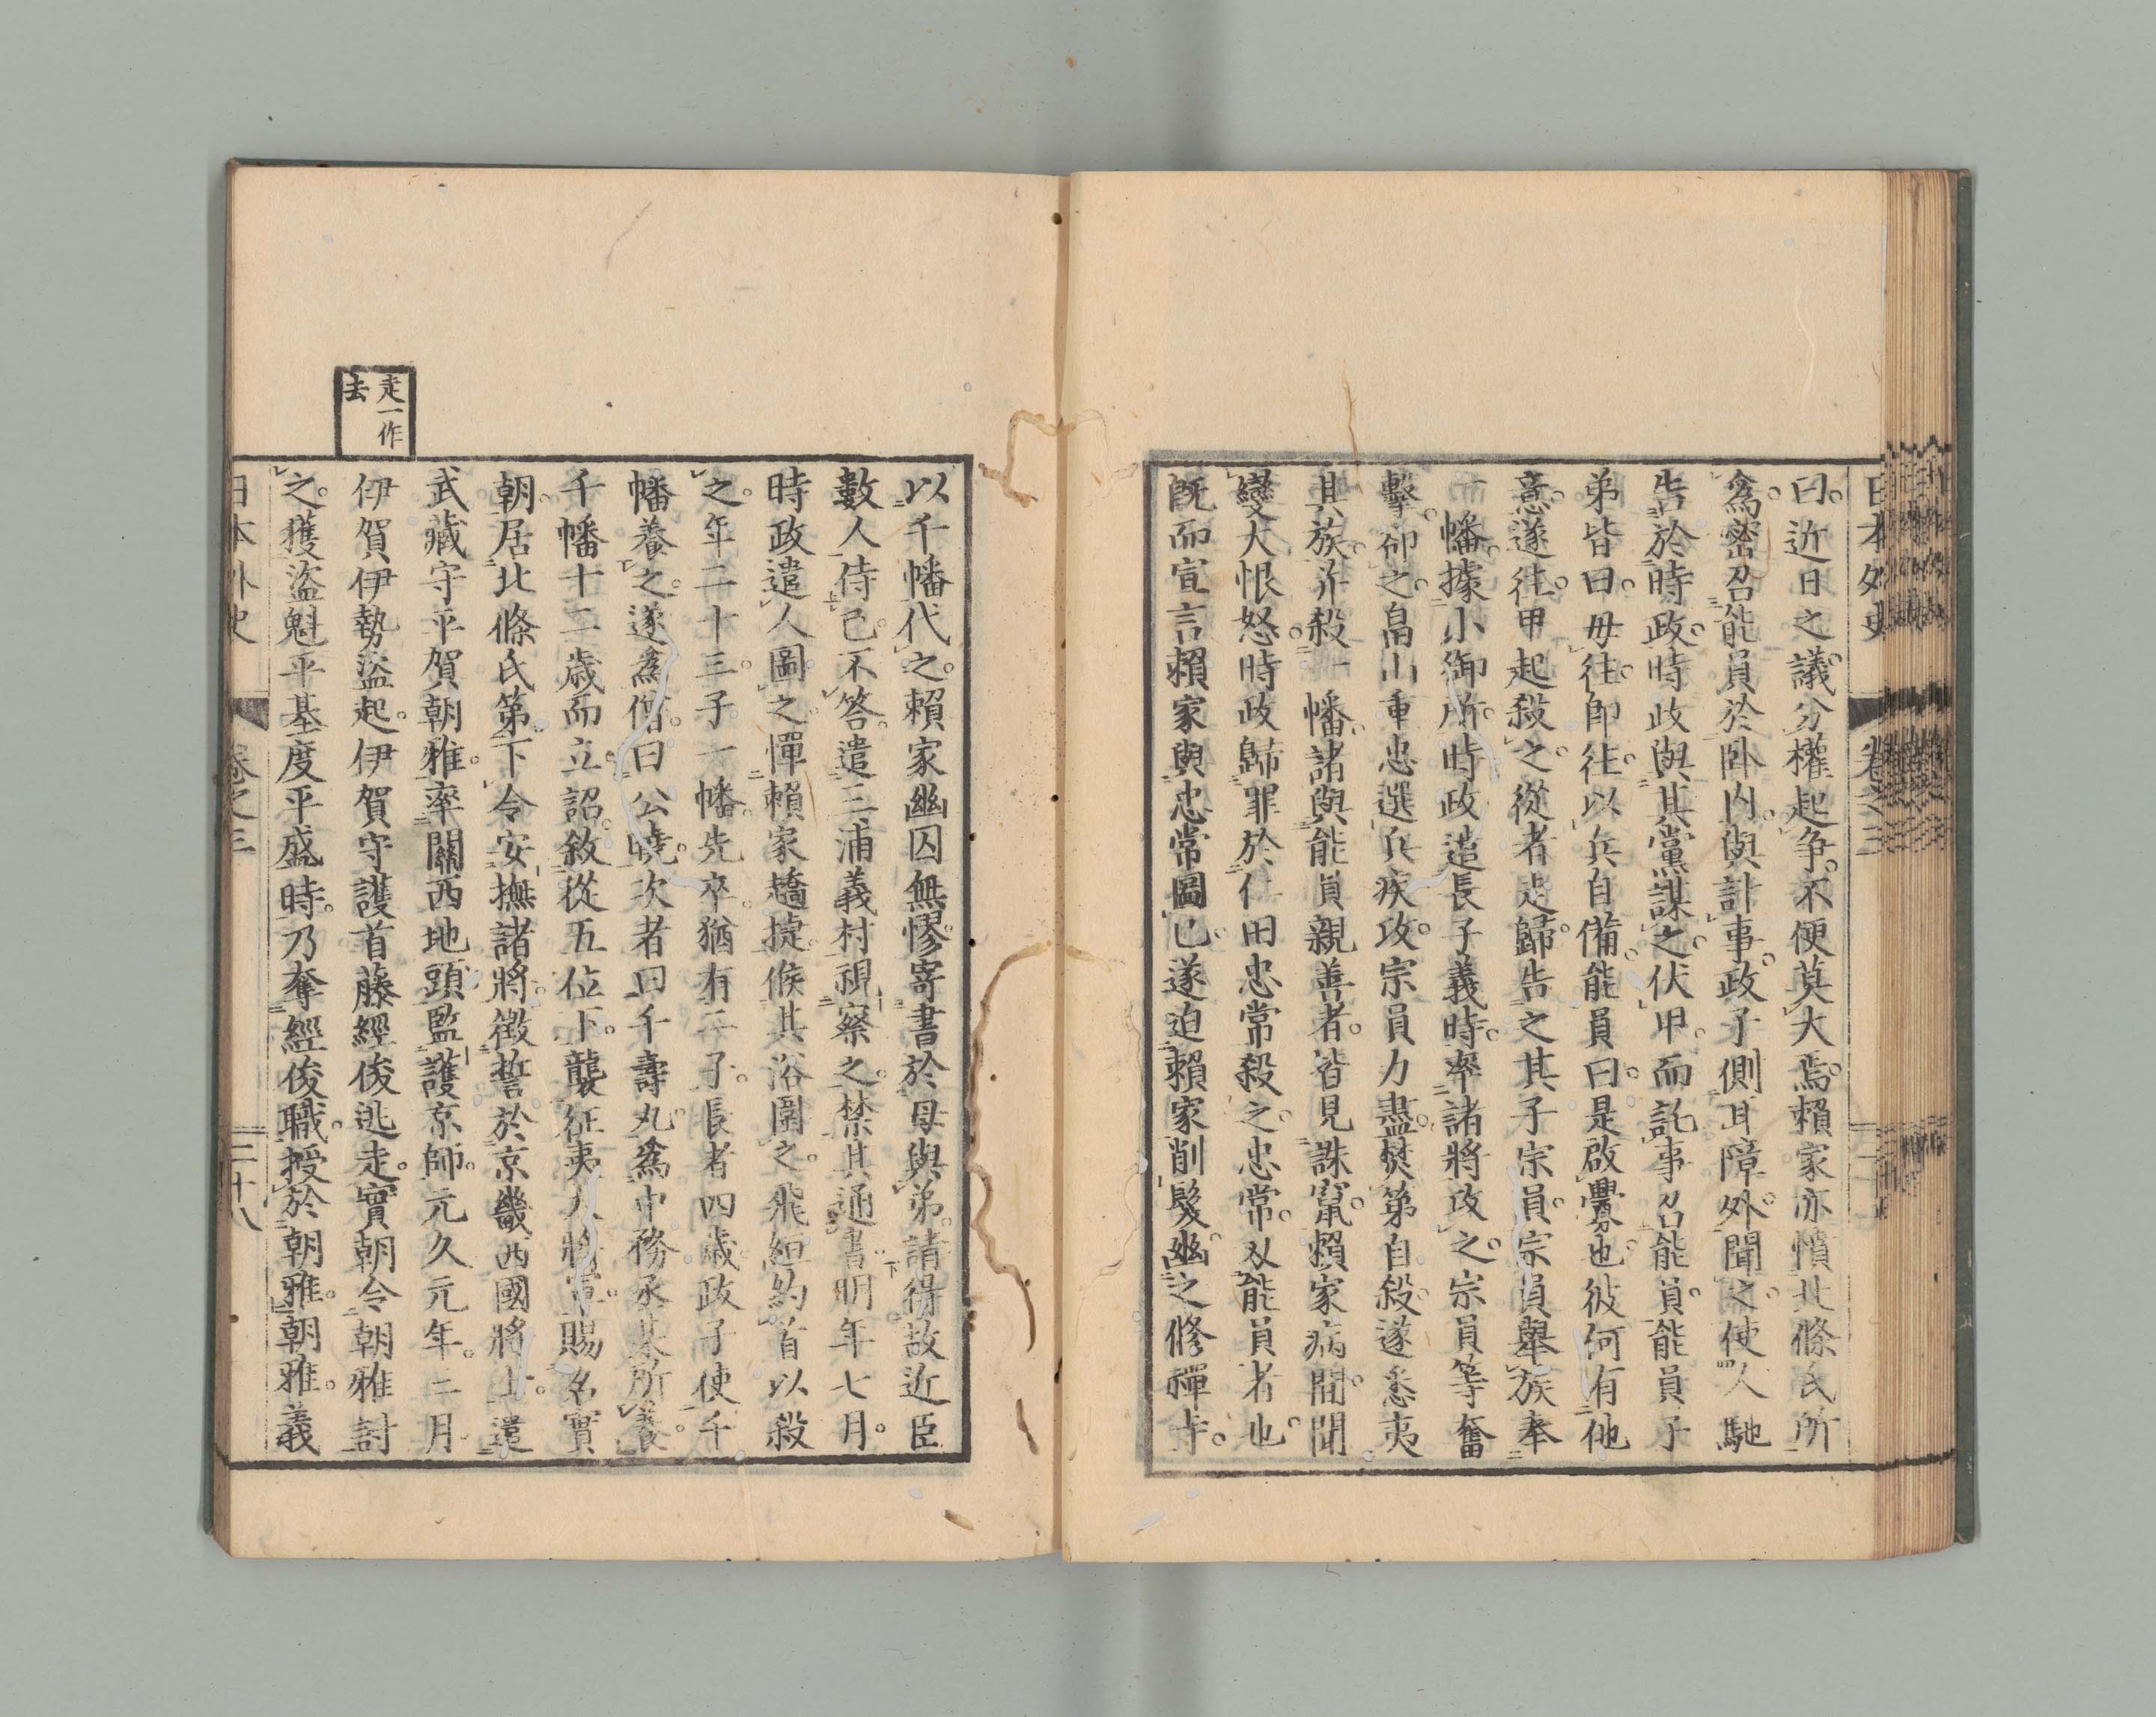 曰。近日之議。分權起爭。不便莫大焉。賴家亦憤北條氏所
爲。密召能員於臥內。與計事。政子側耳障外。聞之。使人馳
告於時政。時政與其黨謀之。伏甲而託事召能員。能員子
弟皆曰。毋往。卽往。以兵自備。能員曰。是啟釁也。彼何有他
意。遂往。甲起殺之。從者走歸。告之其子宗員。宗員舉族奉
一幡。據小御所。時政造長子義時。率諸將攻之。宗員等奮
擊。卻之。畠山重忠選兵疾攻。宗員力盡。焚第自殺。遂悉夷
其族。幷殺一幡。諸與能員親善者。皆見誅竄。賴家病間。聞
變大恨怒。時政歸罪於仁田忠常殺之。忠常。殺能員者也。
旣而宣言賴家與忠常圖己。遂迫賴家削髮。幽之修禪寺。
以千幡代之。賴家幽囚無憀。寄書於母與弟。請得故近臣
數人侍己。不答。遣三浦義村視察之。禁其通書。明年七月。
時政遣人圖之。憚賴家趫捷。候其浴圍之。飛絙約首以殺
之。年二十三。子一幡。先卒。猶有二子。長者四歲。政子使千
幡養之。遂爲僧。曰公曉。次者曰千壽丸。爲中務丞某所養。
千幡十二歲而立。詔敘從五位下。襲征夷大將軍。賜名實
朝。居北條氏第。下令安撫諸將。徵誓於京畿西國將士。遣
武藏守平賀朝雅。率關西地頭。監護京師。元久元年。二月
伊賀伊勢盜起。伊賀守護首藤經俊逃走。實朝令朝雅討
之。獲盜魁平基度平盛時。乃奪經俊職。授於朝雅。朝雅。義
走一作
去
日本外史
卷之三
二十八
日本外史
卷之三